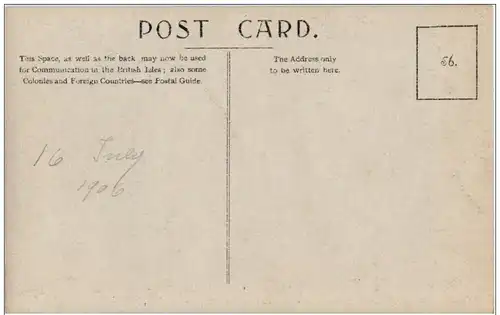 POST CARD.
This Space, as well as the back may now be used
for Communication in the British Isles; also some
Colonies and Foreign Countries—see Postal Guide.
The Address only
to be written here.
€6.
16 July
1906